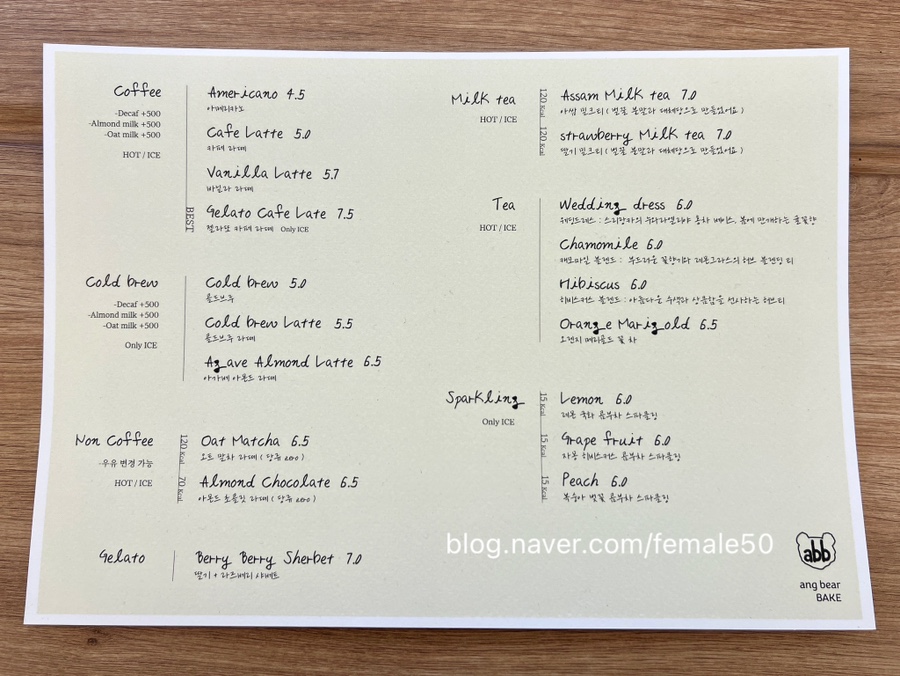 Coffee
-Decaf +500
-Almond milk +500
-Oat milk +500
HOT / ICE
Americano 4.5
아메리카노
Cafe Latte 5.0
카페 라떼
Vanilla Latte 5.7
바닐라 라떼
BEST
Gelato Cafe Late 7.5
젤라또 카페 라떼 Only ICE
Cold brew
-Decaf +500
-Almond milk +500
-Oat milk +500
Only ICE
Cold brew 5.0
콜드브루
Cold brew Latte 5.5
콜드브루 라떼
Agave Almond Latte 6.5
아가베 아몬드 라떼
Non Coffee
-우유 변경 가능
HOT / ICE
120 Kcal
Oat Matcha 6.5
오트 말차 라떼 ( 당류 zero )
70 Kcal
Almond Chocolate 6.5
아몬드 초콜릿 라떼 ( 당류 zero )
Gelato
Berry Berry Sherbet 7.0
딸기 + 라즈베리 샤베트
Milk tea
HOT / ICE
120 Kcal
Assam Milk tea 7.0
아쌈 밀크티 ( 벌꿀 분말과 대체당으로 만들었어요 )
120 Kcal
strawberry Milk tea 7.0
딸기 밀크티 ( 벌꿀 분말과 대체당으로 만들었어요 )
Tea
HOT / ICE
Wedding dress 6.0
웨딩드레스 : 스리랑카의 누와라엘리야 홍차 베이스, 봄에 만개하는 꿀꽃향
Chamomile 6.0
캐모마일 블렌드 : 부드러운 꽃향기와 레몬그라스의 허브 블렌딩 티
Hibiscus 6.0
히비스커스 블렌드 : 아름다운 수색과 상큼함을 선사하는 허브티
Orange Marigold 6.5
오렌지 메리골드 꽃 차
Sparkling
Only ICE
15 Kcal
Lemon 6.0
레몬 국화 콤부차 스파클링
15 Kcal
Grape fruit 6.0
자몽 히비스커스 콤부차 스파클링
15 Kcal
Peach 6.0
복숭아 벚꽃 콤부차 스파클링
blog.naver.com/female50
abb
ang bear
BAKE